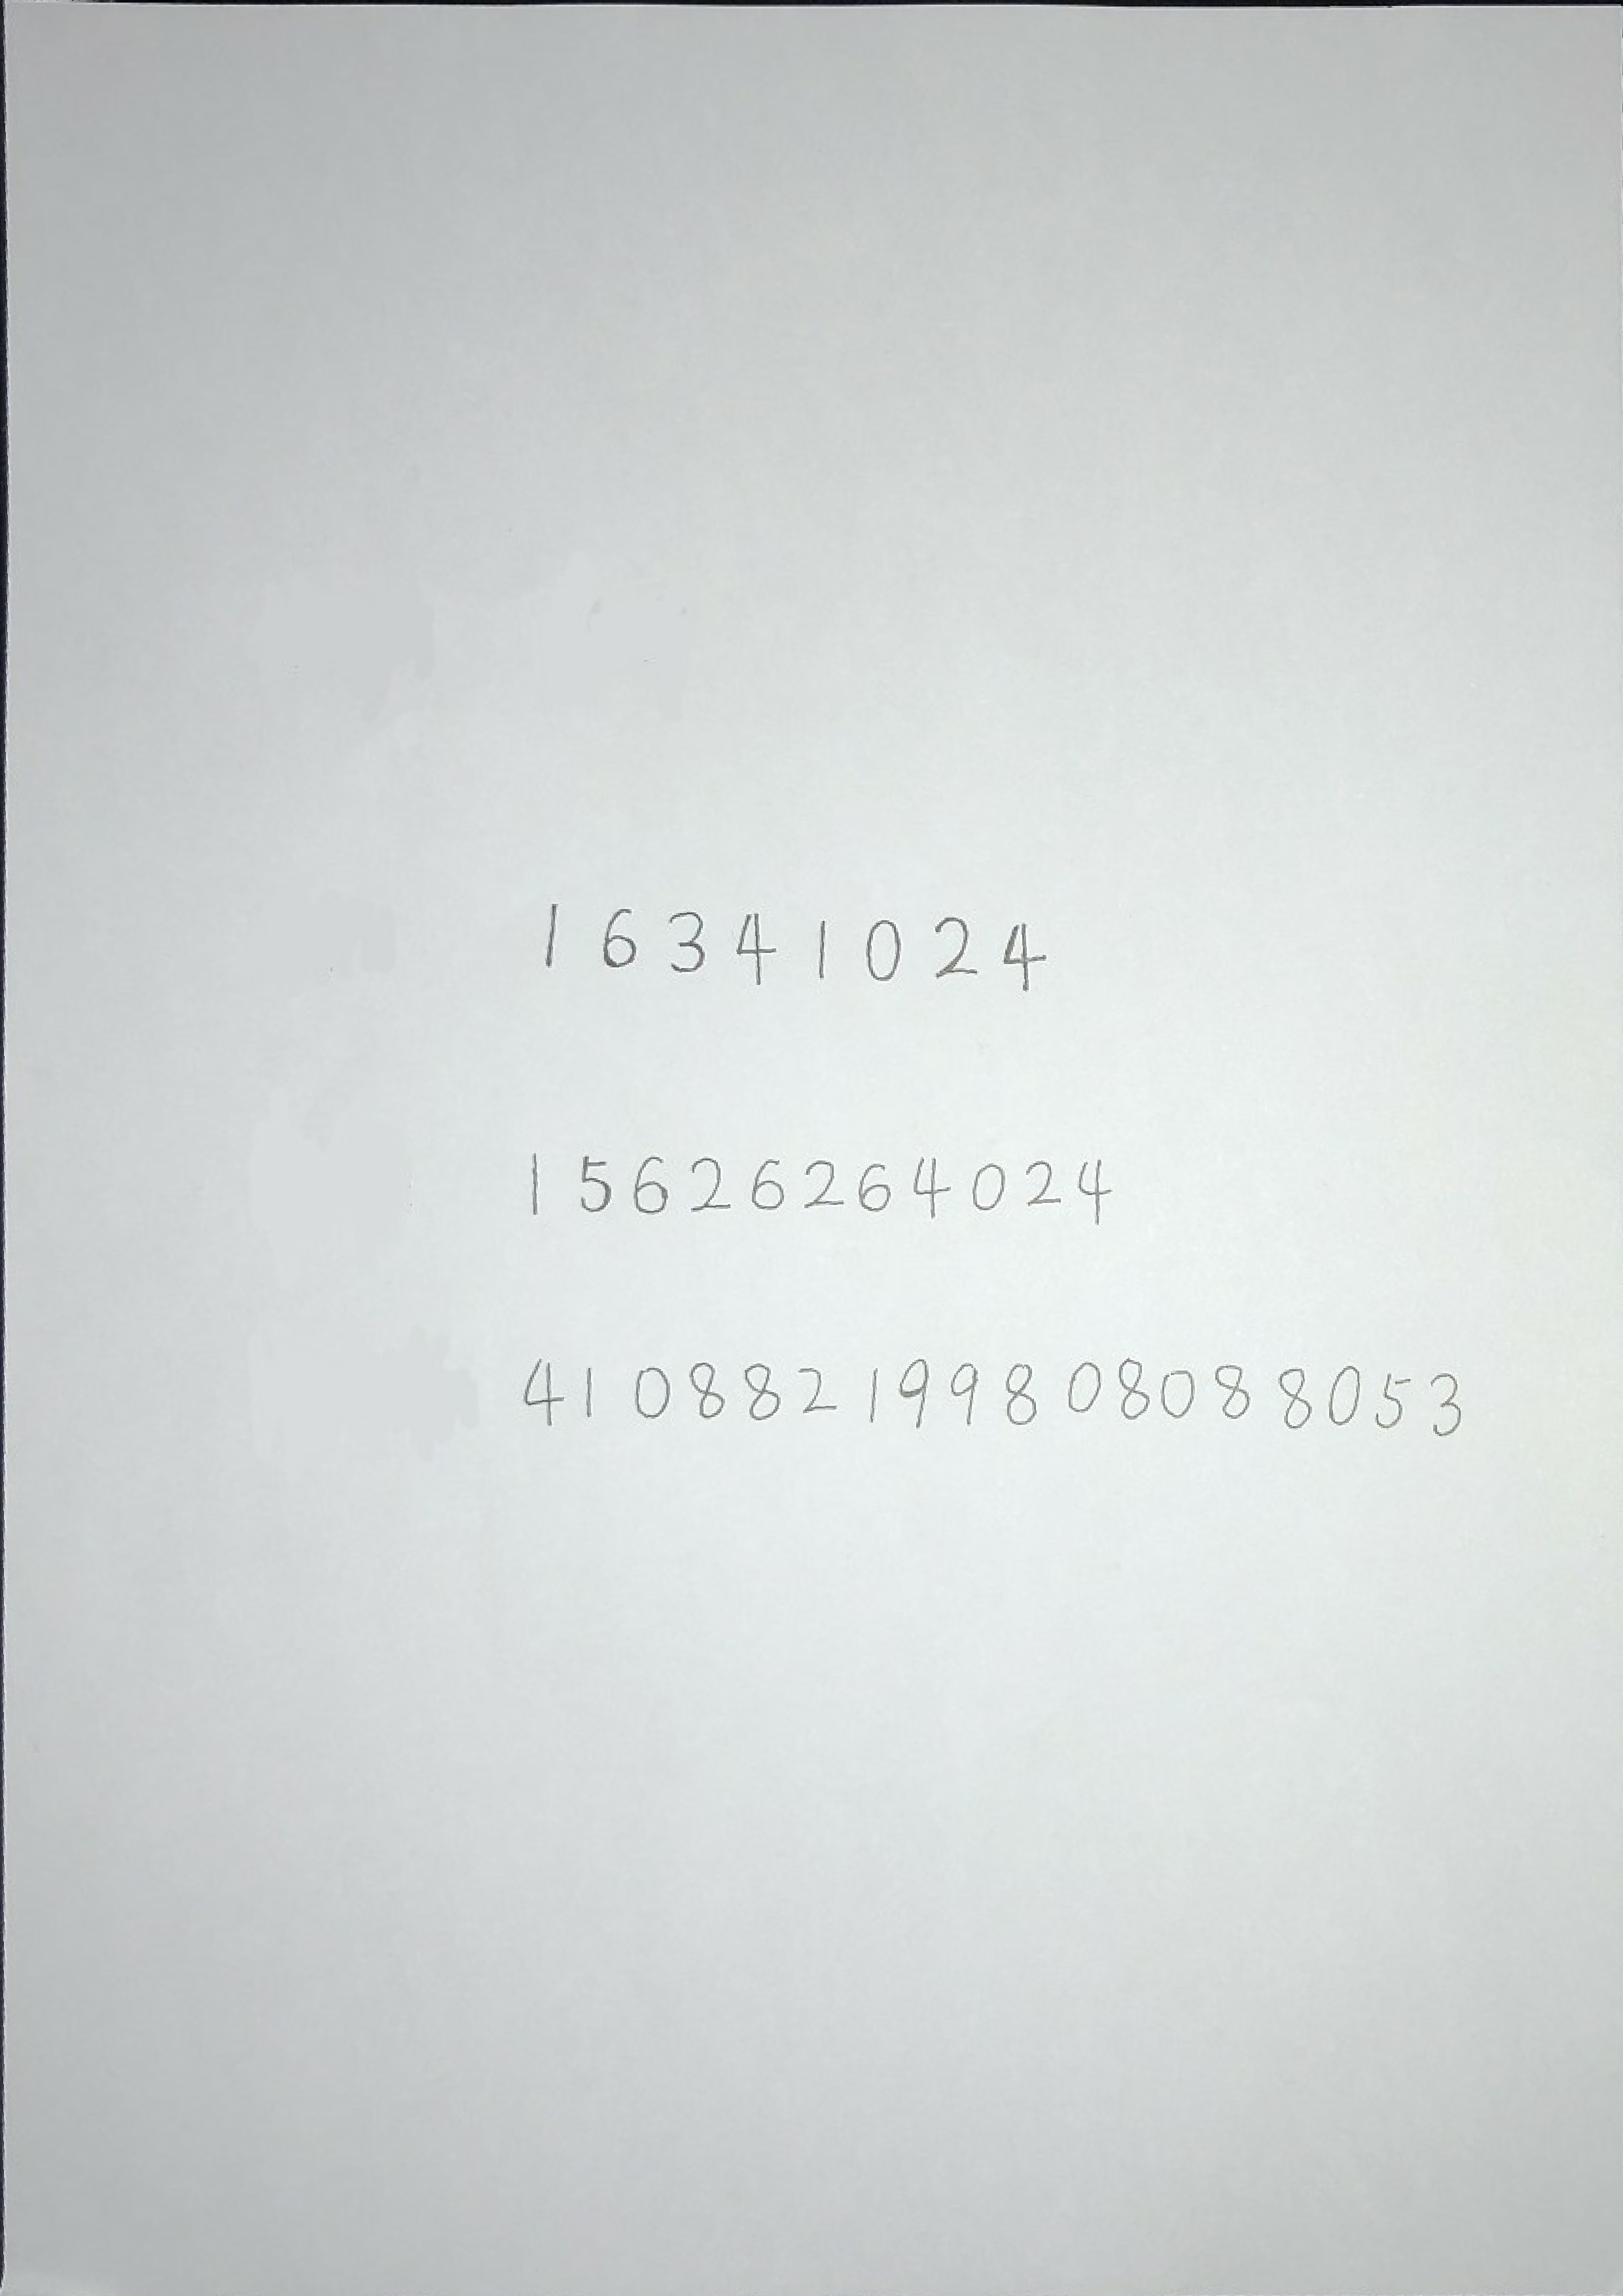 16341024
15626264024
410882199808088053